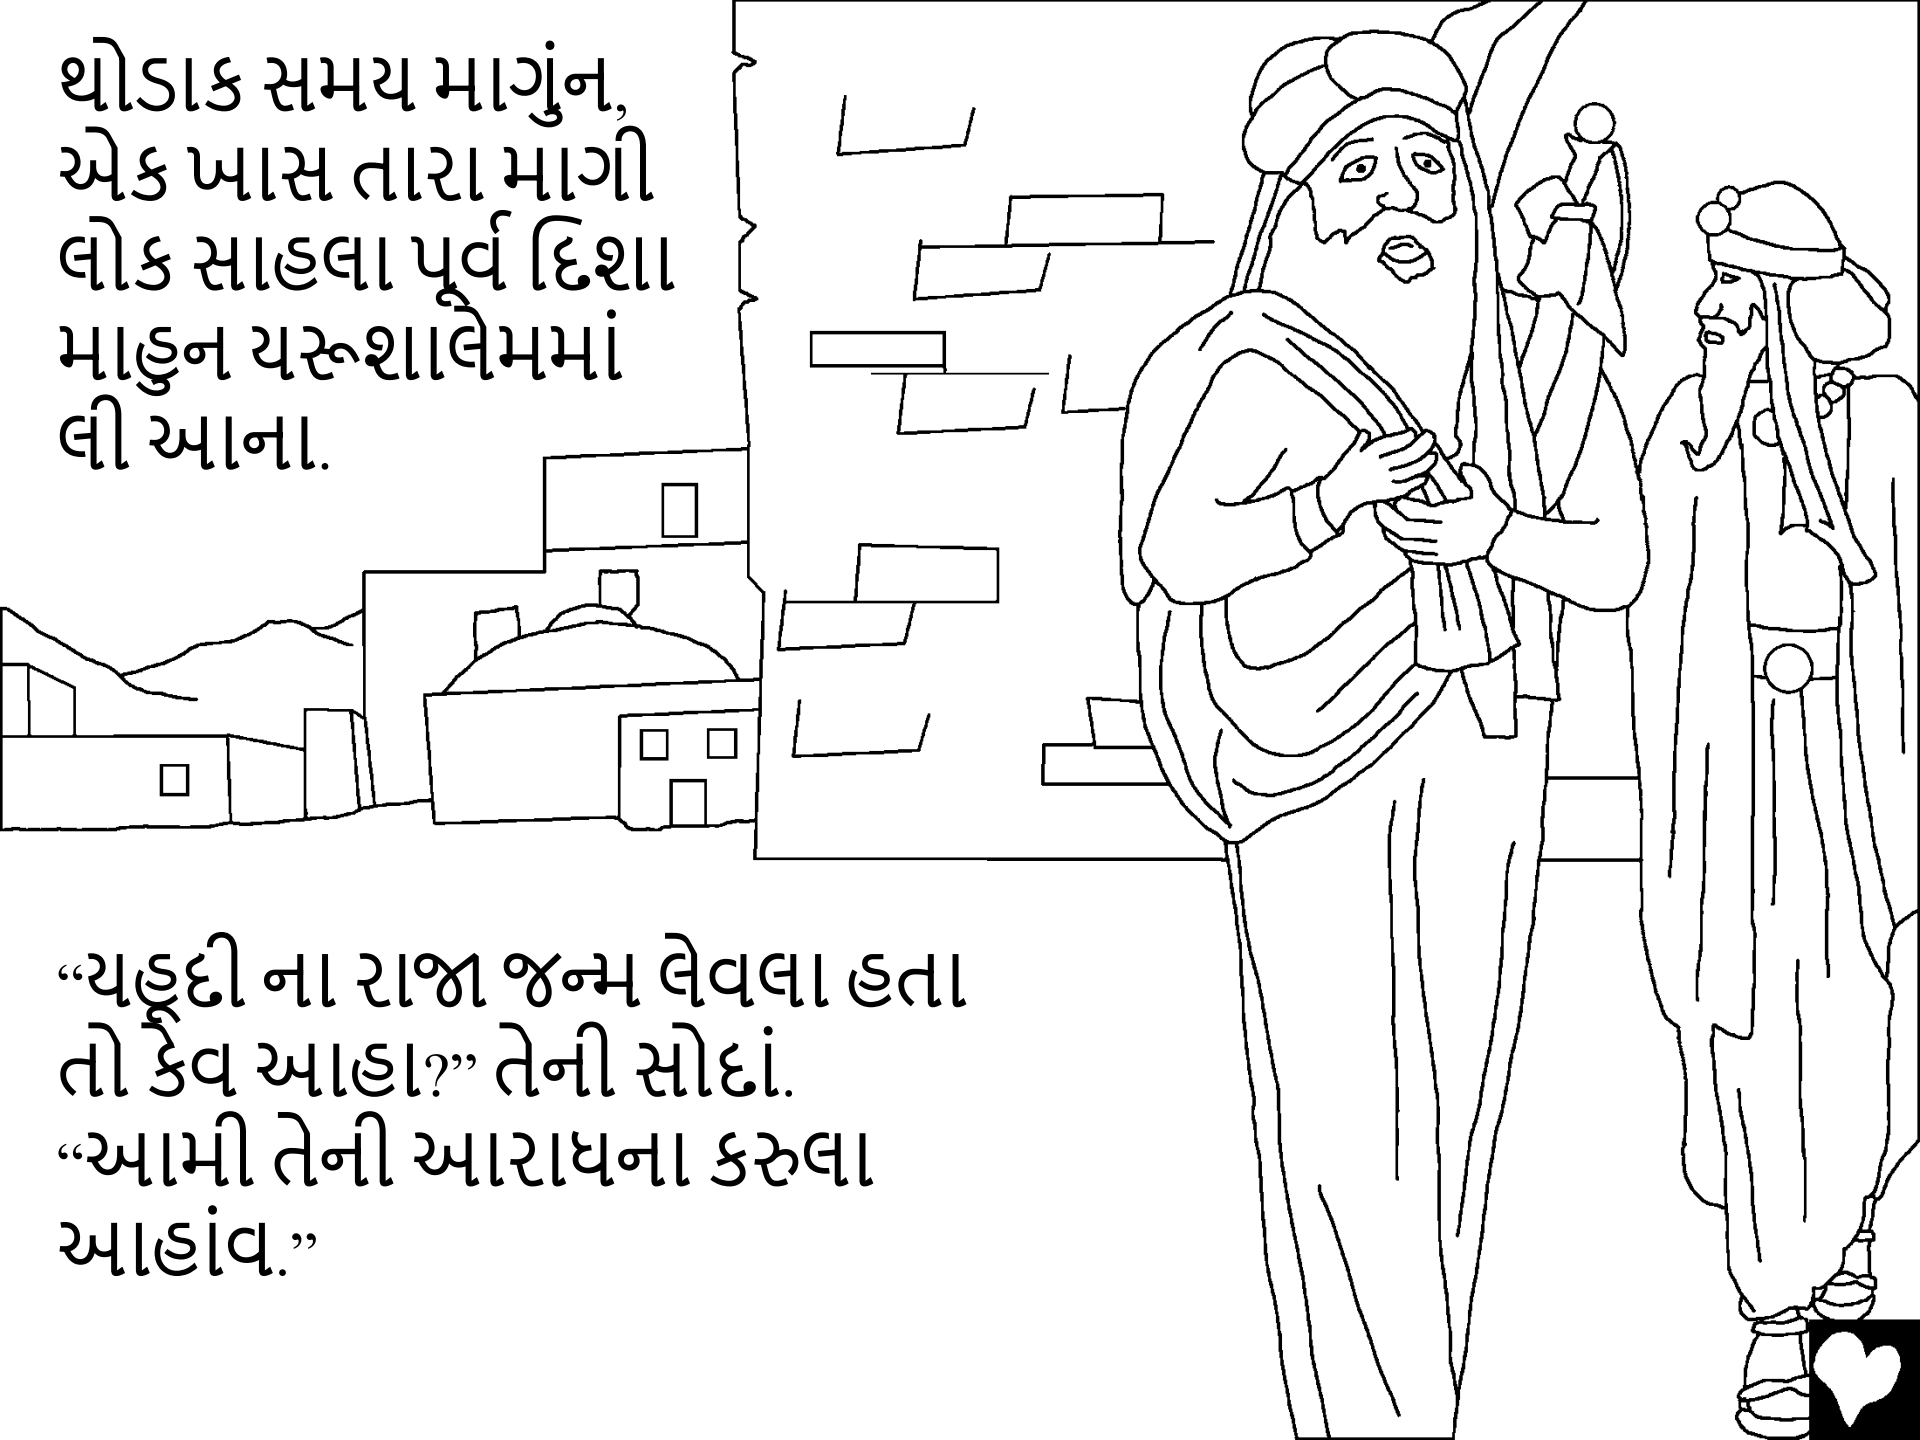 થોડાક સમય માગુંન,
એક ખાસ તારા માગી
લોક સાહલા પૂર્વ દિશા
માહુન યરૂશાલેમમાં
લી આના.
“યહૂદી ના રાજા જન્મ લેવલા હતા
તો કેવ આહા?” તેની સોદાં.
“આમી તેની આરાધના કરુલા
આહાંવ.”